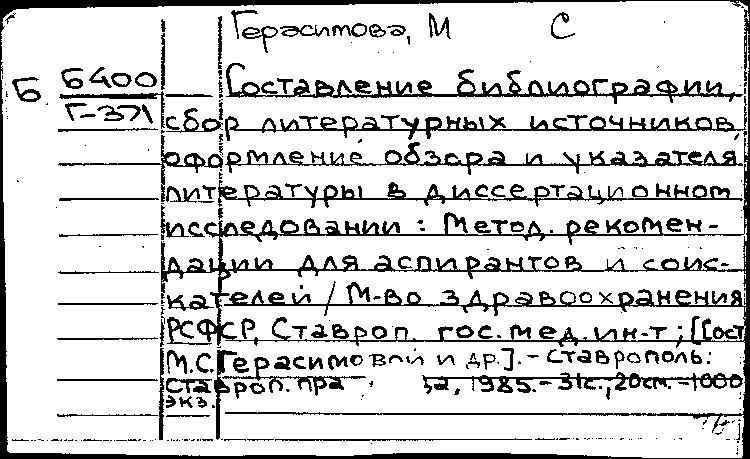 Герасимова, М С
Б Б400 Составление библиографии,
Г-371 сбор литературных источников,
оформление обзора и указателя
литературы в диссертационном
исследовании : Метод. рекомен-
дации для аспирантов и соис-
кателей / М-во здравоохранения
РСФСР, Ставроп. гос. мед. ин-т ; [Сост
М.С. Герасимовой и др.]. - Ставрополь:
Ставроп. пра , 1985. - 31с.; 20см. - 1000
экз.